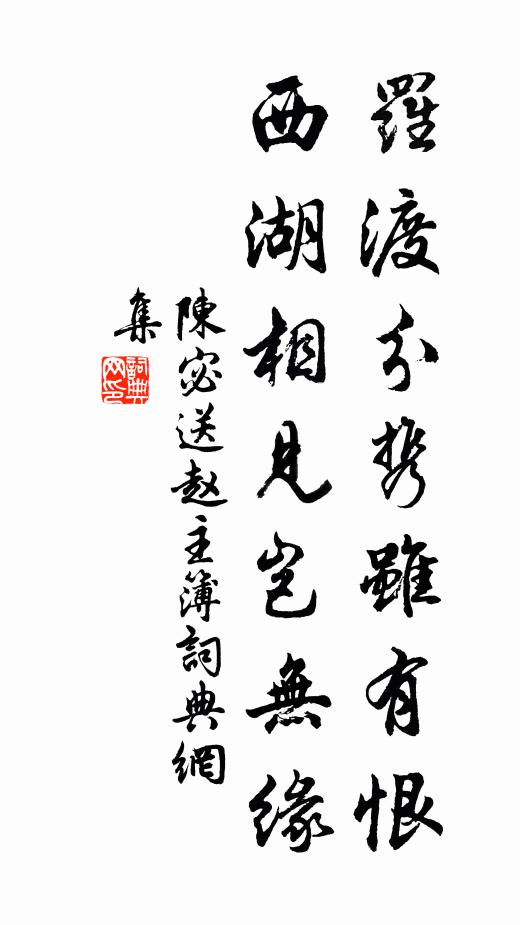 羅渡分携雖有恨
西湖相見豈無緣
陳宓送赵主簿詞典網
集
詞典
网印